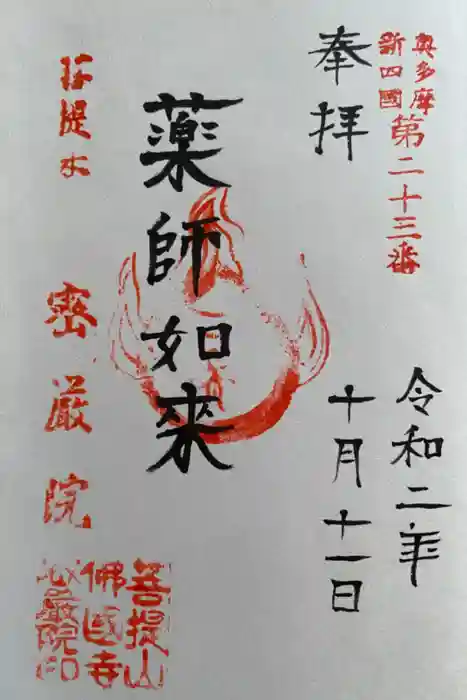 奥多摩
新四國
第二十三番
奉拝
令和二年
十月十一日
薬師如来
菩提水
密厳院
菩提山
佛國寺
密厳院印